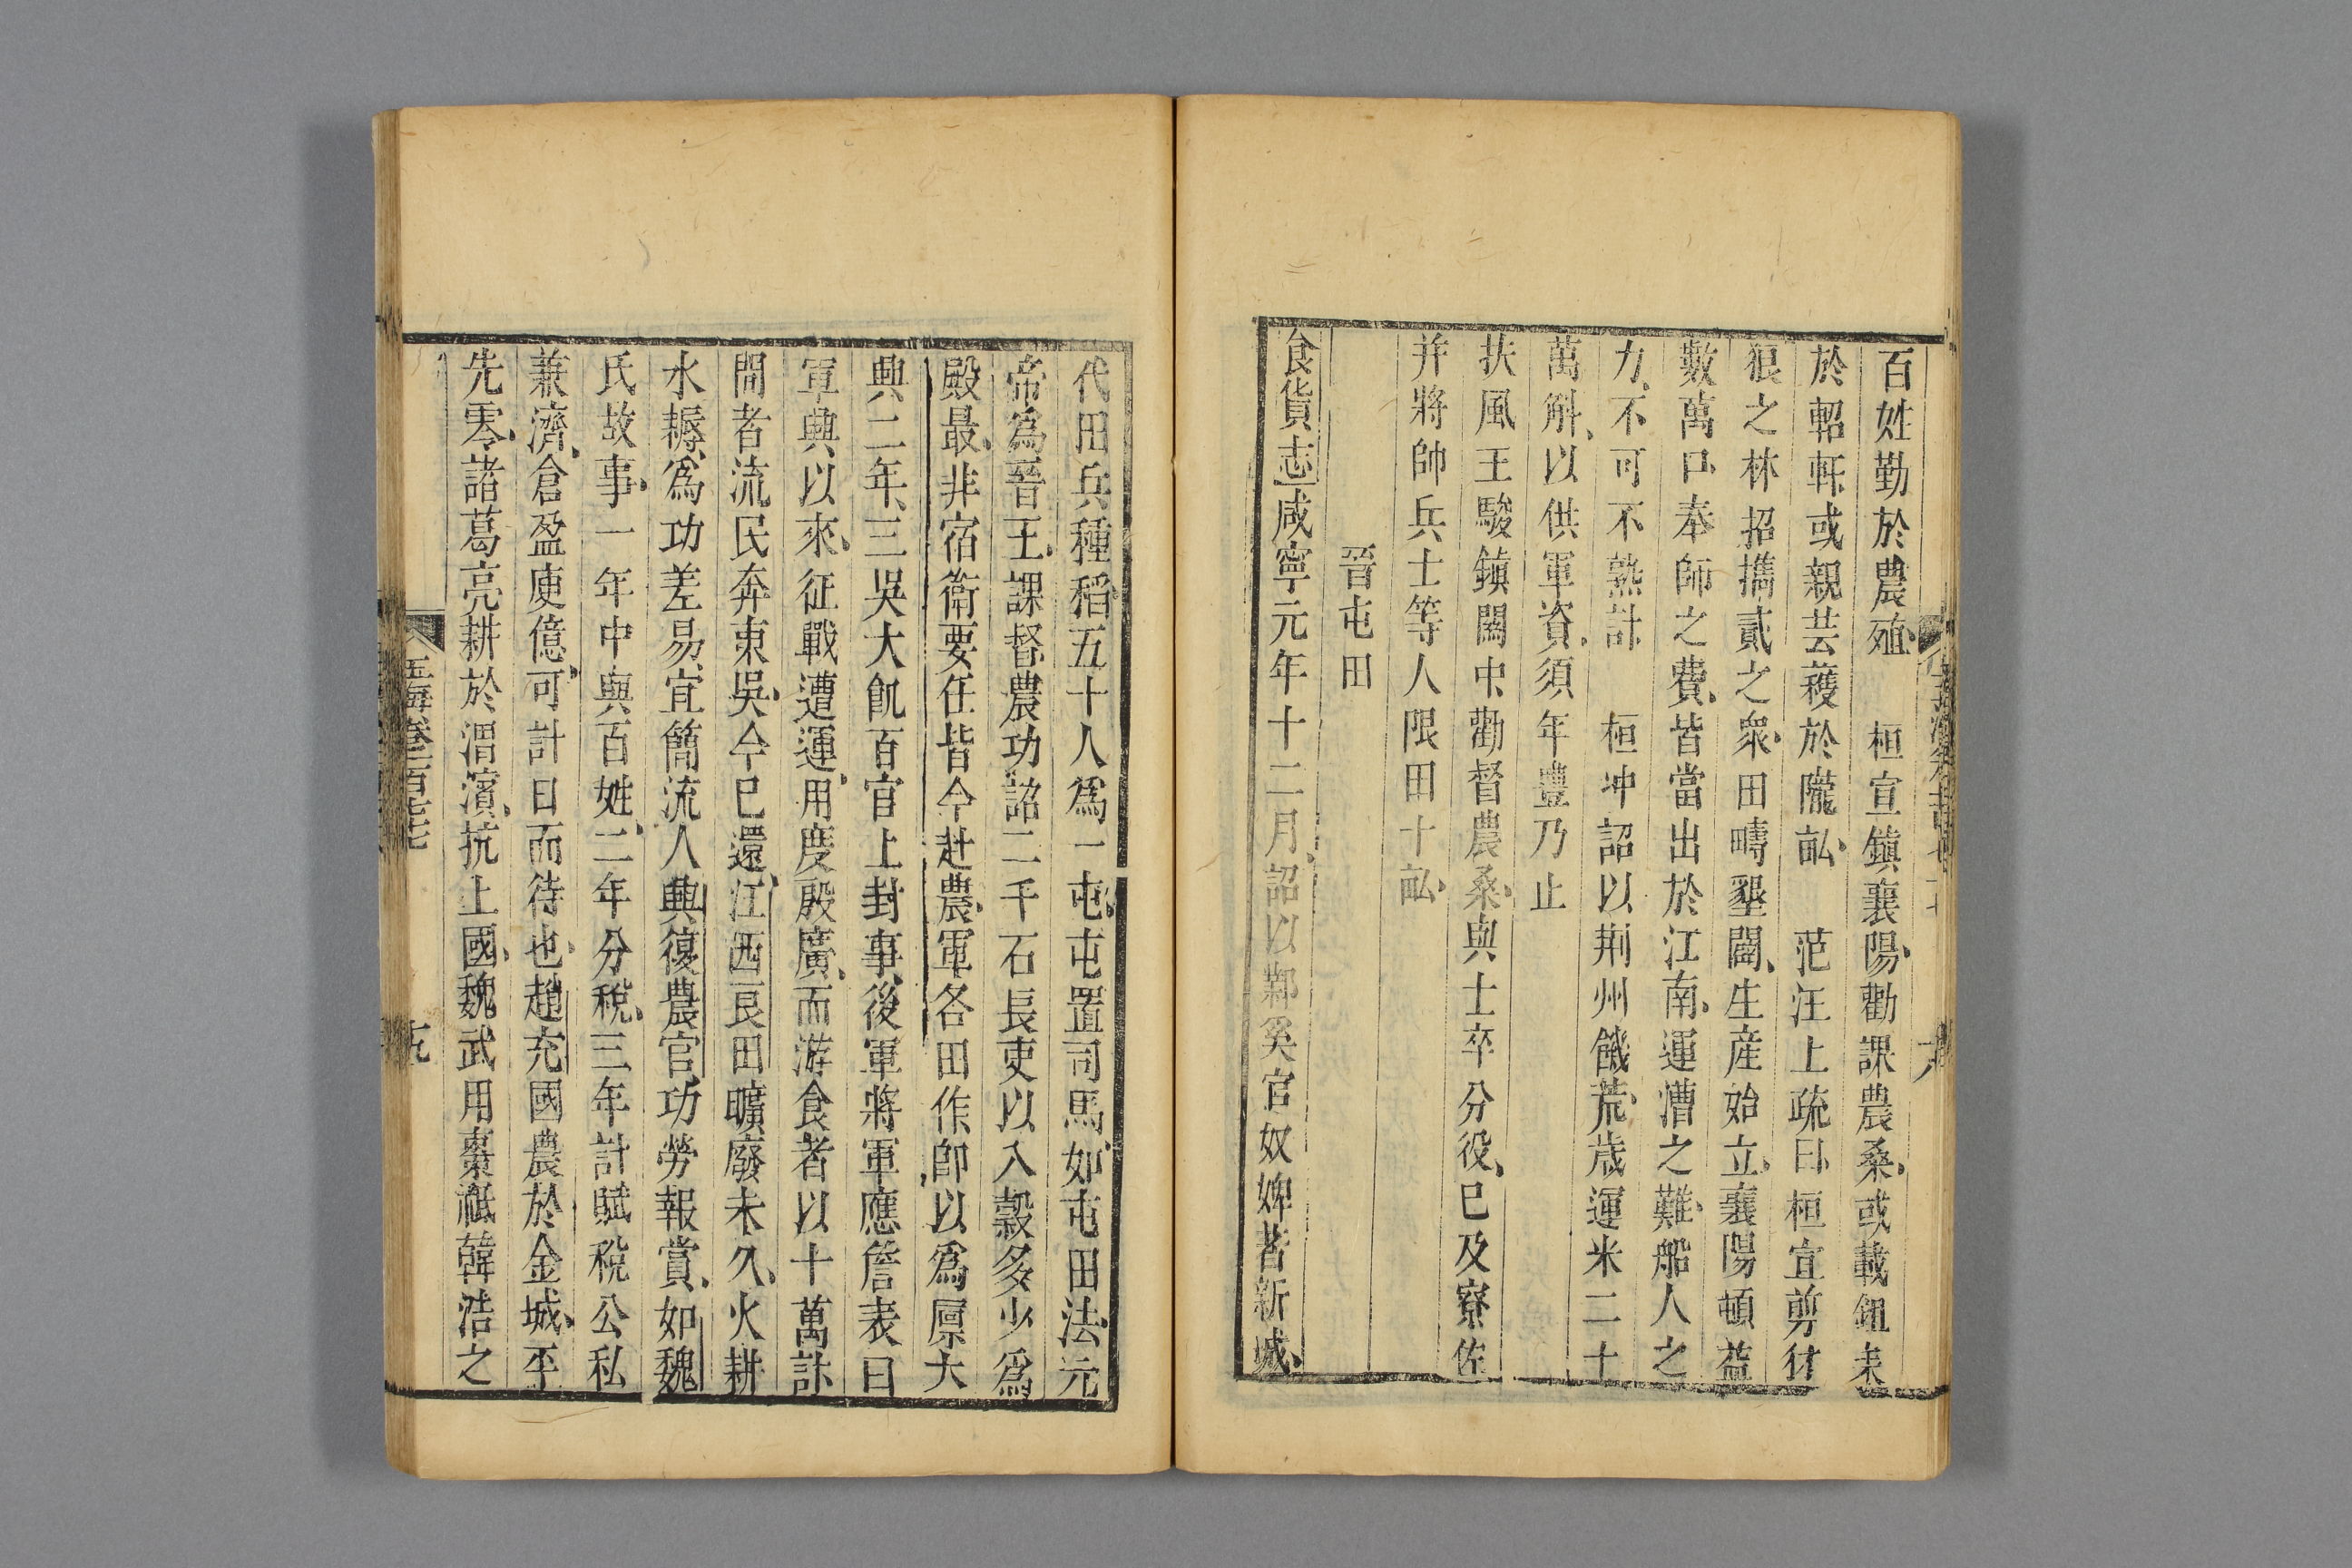 百姓勤於農殖 桓宣鎮襄陽勸課農桑或載鉏耒
於軺軒或親芸穫於隴畝 范汪上疏曰桓宣剪豺
狼之林招擕貳之衆田疇墾闢生産始立襄陽頓益
數萬口奉師之費皆當出於江南運漕之難船人之
力不可不熟計 桓冲詔以荆州饑荒歲運米二十
萬斛以供軍資須年豐乃止
扶風王駿鎮關中勸督農桑與士卒分役已及寮佐
并將帥兵士等人限田十畝
晉屯田
食貨志咸寧元年十二月詔以鄴奚官奴婢著新城
代田兵種稻五十人爲一屯屯置司馬如屯田法元
帝爲晉王課督農功詔二千石長吏以入穀多少爲
殿最非宿衛要任皆令赴農軍各田作卽以爲廩大
興二年三吳大飢百官上封事後軍將軍應詹表曰
軍興以來征戰遭運用度殷廣而游食者以十萬計
間者流民奔東吳今已還江西良田曠廢未久火耕
水耨爲功差易宜簡流人興復農官功勞報賞如魏
氏故事一年中與百姓二年分稅三年計賦稅公私
兼濟倉盈庾億可計日而待也趙充國農於金城平
先零諸葛亮耕於渭濱抗上國魏武用棗祗韓浩之
玉海卷一百七十七